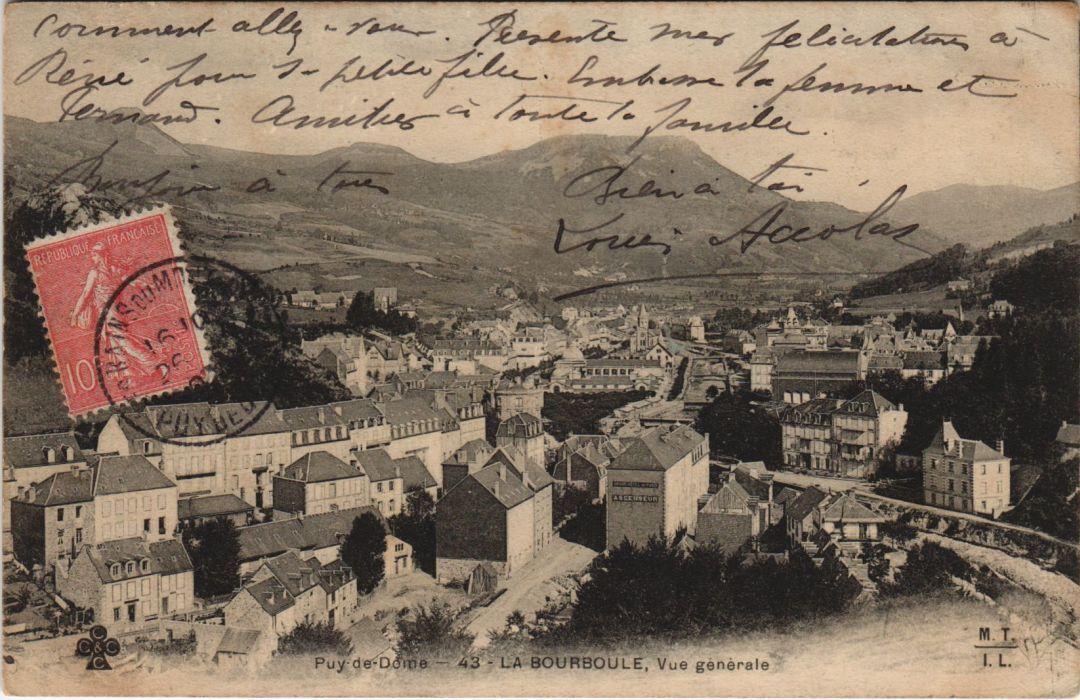 Comment allez-vous. Présente mes félicitations à
René pour sa petite fille. Embrasse ta femme et
Fernand. Amitiés à toute ta famille.
Bonjour à tous
Bien à toi
Louis
REPUBLIQUE FRANÇAISE
10
16
25
PUY DE D
ASCENSEUR
Puy-de-Dôme - 43 - LA BOURBOULE, Vue générale
C C & C
M.T.
I.L.